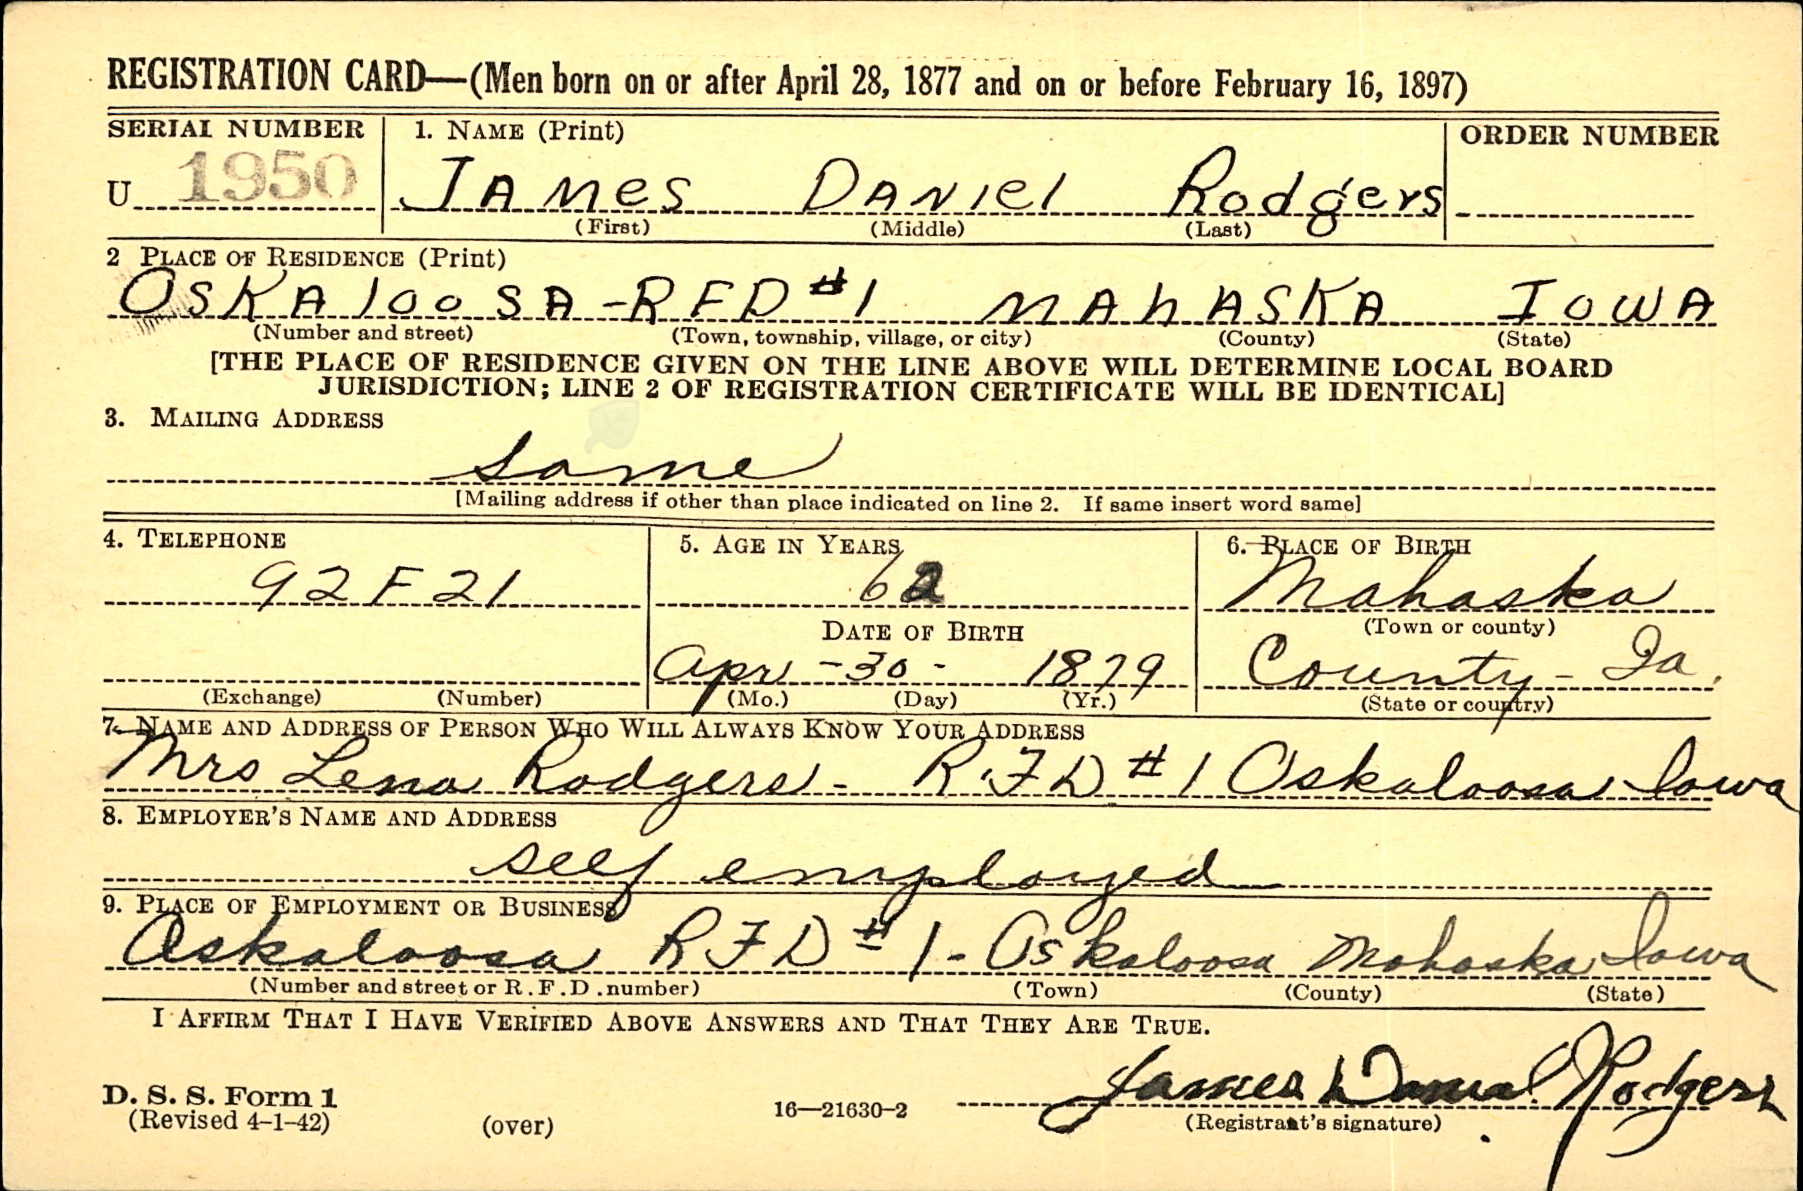 REGISTRATION CARD—(Men born on or after April 28, 1877 and on or before February 16, 1897)
SERIAL NUMBER 1. NAME (Print) ORDER NUMBER
U 1950 JAMES DANIEl RodgeRs
(First) (Middle) (Last)
2 PLACE OF RESIDENCE (Print)
OSKAlooSA - RFD #1 MAhASKA IowA
(Number and street) (Town, township, village, or city) (County) (State)
[THE PLACE OF RESIDENCE GIVEN ON THE LINE ABOVE WILL DETERMINE LOCAL BOARD
JURISDICTION; LINE 2 OF REGISTRATION CERTIFICATE WILL BE IDENTICAL]
3. MAILING ADDRESS
Same
[Mailing address if other than place indicated on line 2. If same insert word same]
4. TELEPHONE 5. AGE IN YEARS 6. PLACE OF BIRTH
92 F 21 62 Mahaska
DATE OF BIRTH (Town or county)
Apr - 30 - 1879 County - Ia.
(Exchange) (Number) (Mo.) (Day) (Yr.) (State or country)
7. NAME AND ADDRESS OF PERSON WHO WILL ALWAYS KNOW YOUR ADDRESS
Mrs Lena Rodgers - R.F.D #1 Oskaloosa Iowa
8. EMPLOYER'S NAME AND ADDRESS
self employed
9. PLACE OF EMPLOYMENT OR BUSINESS
Oskaloosa RFD #1 - Oskaloosa Mahaska Iowa
(Number and street or R.F.D. number) (Town) (County) (State)
I AFFIRM THAT I HAVE VERIFIED ABOVE ANSWERS AND THAT THEY ARE TRUE.
James Danial Rodgers
D. S. S. Form 1
(Revised 4-1-42) (over) 16—21630-2 (Registrant's signature)